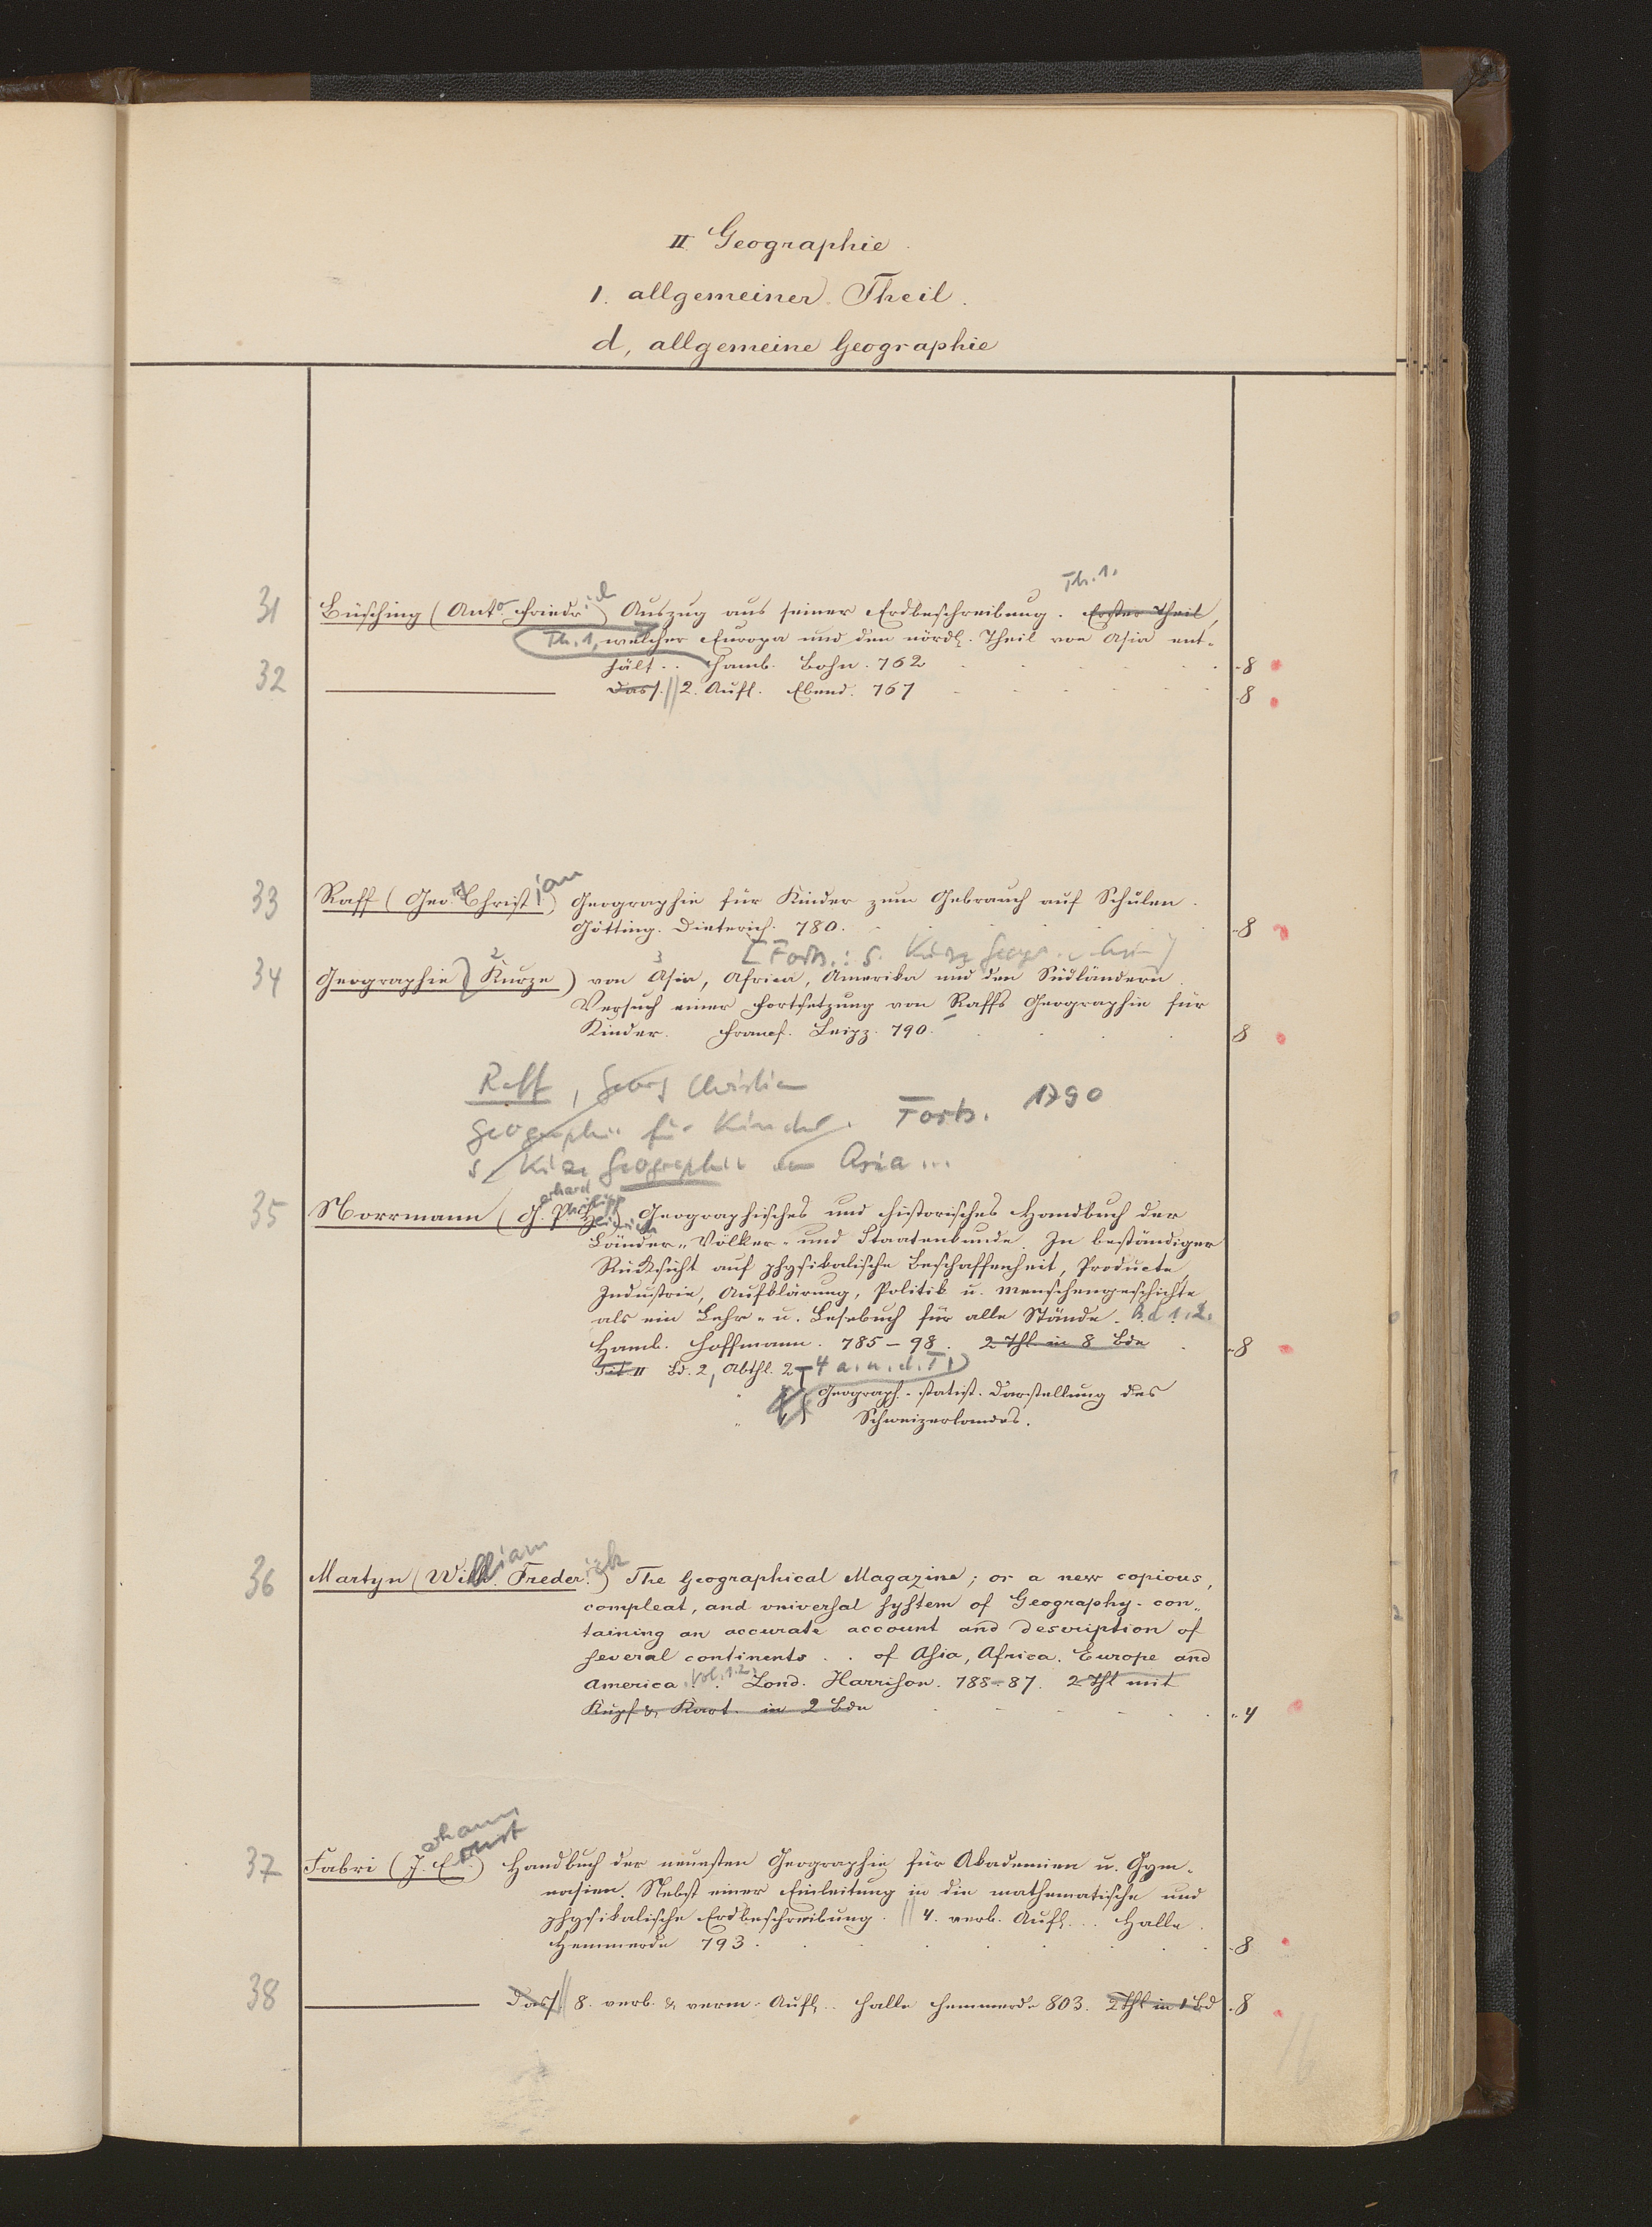 II Geographie.
1. allgemeiner Theil.
d, allgemeine Geographie
Th. 1.
31 Büsching (Ant. Friedr.) Auszug aus seiner Erdbeschreibung. Erster Theil,
Th. 1, welcher Europa und den nördl. Theil von Asia ent-
hält.. Hamb. Bohn. 762 8
32 Dass. // 2. Aufl. Ebend. 767 8
33 Raff (Geo. Christian) Geographie für Kinder zum Gebrauch auf Schulen.
Götting. Dieterich. 780. 8
[Forts.: s. Kurze Geogr. v. Asia]
34 Geographie (Kurze) von Asia, Africa, Amerika und den Südländern.
Versuch einer Fortsetzung von Raffs Geographie für
Kinder. Francf. Leipz. 790. 8
Raff, Georg Christian
Geographie für Kinder. Forts. 1790
s. Kurze Geographie von Asia ...
35 Norrmann (Gerhard Philipp Heinrich) Geographisches und historisches Handbuch der
Länder-, Völker- und Staatenkunde. In beständiger
Rücksicht auf physikalische Beschaffenheit, Producte,
Industrie, Aufklärung, Politik u. Menschengeschichte
als ein Lehr- u. Lesebuch für alle Stände. Bd 1. 2.
Hamb. Hoffmann. 785-98. 2 Thl. in 8 Bde 8
Tit. II Bd. 2, Abthl. 2-4 a. u. d. T.
Geograph.-statist. Darstellung des
Schweizerlandes.
36 Martyn (William Frederick) The Geographical Magazine; or a new copious,
compleat, and universal system of Geography - con-
taining an accurate account and description of
several continents . . of Asia, Africa, Europe and
America. Vol. 1. 2. Lond. Harrison. 788-87. 2 Thl mit
Kupf & Kart. in 2 Bde 4
37 Fabri (Johann Ernst) Handbuch der neuesten Geographie für Akademien u. Gym-
nasien. Nebst einer Einleitung in die mathematische und
physikalische Erdbeschreibung. // 4. verb. Aufl... Halle.
Hemmerde 793. 8
38 Dass // 8. verb. & verm. Aufl... Halle Hemmerde 803. 2 Thl in 1 Bd 8